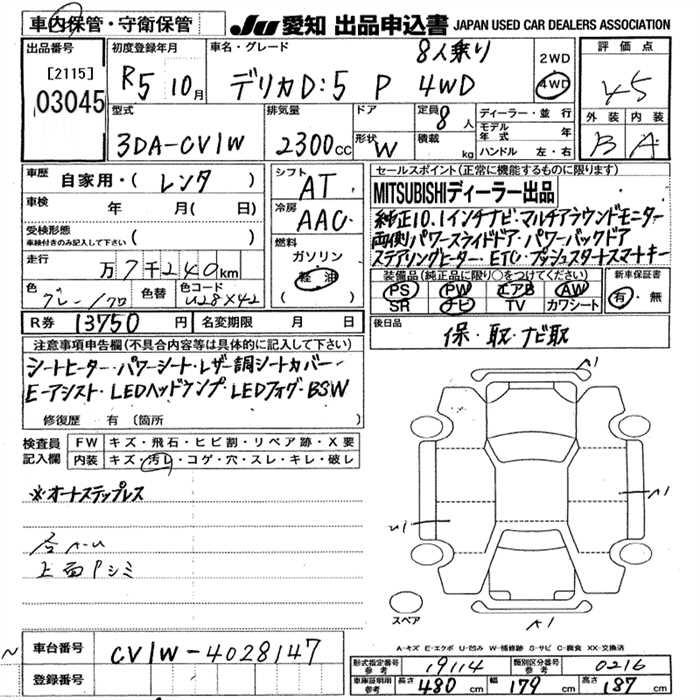 車内保管・守衛保管
JU 愛知 出品申込書 JAPAN USED CAR DEALERS ASSOCIATION
出品番号
[2115]
03045
初度登録年月
R5 10月
車名・グレード
8人乗り
デリカD:5 P 4WD
2WD
4WD
評価点
4.5
外装 内装
B A
型式
3DA-CV1W
排気量
2300cc
ドア
形状 W
定員 8人
積載 kg
ディーラー・並行
モデル年式 年
ハンドル 左・右
車歴 自家用・( レンタ )
車検 年 月( 日)
受検形態
車検付きのみ記入して下さい ( )
走行 万7千240km
色 グレー/クロ 色替 色コード U28X42
シフト AT
冷房 AAC
燃料
ガソリン
軽油
セールスポイント(正常に機能するものに限ります)
MITSUBISHIディーラー出品
純正10.1インチナビ・マルチアラウンドモニター
両側パワースライドドア・パワーバックドア
ステアリングヒーター・ETC・プッシュスタートスマートキー
装備品(純正品に限り○をつけてください)
PS PW エアB AW
SR ナビ TV カワシート
新車保証書
有・無
R券 13750円 名変期限 月 日
後日品 保・取・ナビ取
注意事項申告欄(不具合内容等は具体的に記入して下さい)
シートヒーター・パワーシート・レザー調シートカバー・
E-アシスト・LEDヘッドランプ・LEDフォグ・BSW
修復歴 有 (箇所 )
検査員記入欄
FW キズ・飛石・ヒビ割・リペア跡・X要
内装 キズ・汚レ・コゲ・穴・スレ・キレ・破レ
※オートステップレス
上面Pシミ
A1
A1
U1
A1
スペア
A-キズ E-エクボ U-凹み W-補修跡 S-サビ C-腐食 XX-交換済
車台番号 CV1W-4028147
登録番号
型式指定番号 参考 19114 類別区分番号 参考 0216
車庫証明用 参考 長さ 480cm 幅 179cm 高さ 187cm